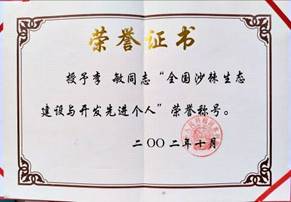 荣誉证书
授予李 敏同志“全国沙棘生态
建设与开发先进个人”荣誉称号。
二〇〇二年十月